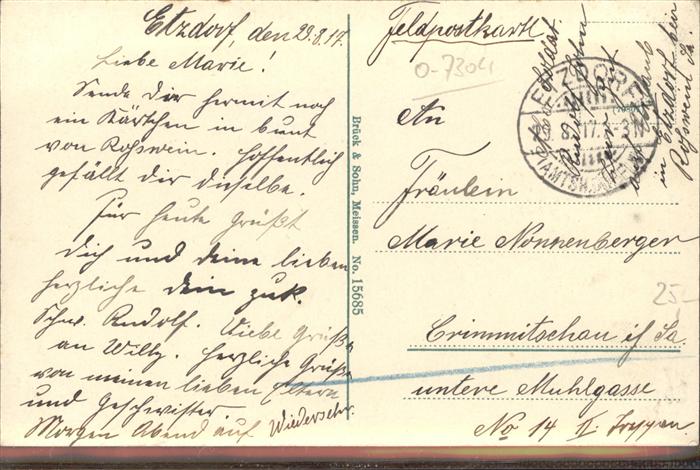 Etzdorf, den 29.8.17.
Liebe Marie!
Sende Dir hiermit noch
ein Kärtchen in bunt
von Roßwein. Hoffentlich
gefällt dir dieselbe.
Für heute grüßt
dich und deine lieben
herzliche dein zuk.
Schw. Rudolf. Liebe Grüße
an Willy. Herzliche Grüße
von meinen lieben Eltern
und Geschwister.
Morgen Abend auf Wiederseh.
Brück & Sohn, Meissen. No. 15685
Feldpostkarte
0-7304
An
Fräulein
Marie Nonnenberger
25-
Crimmitschau i/ Sa.
untere Muhlgasse
No 14 II. Treppen.
Soldat
Rudolf
auf Urlaub
in Etzdorf bei
Roßwein S.
ETZDORF
29.8.17.
(AMTSH.